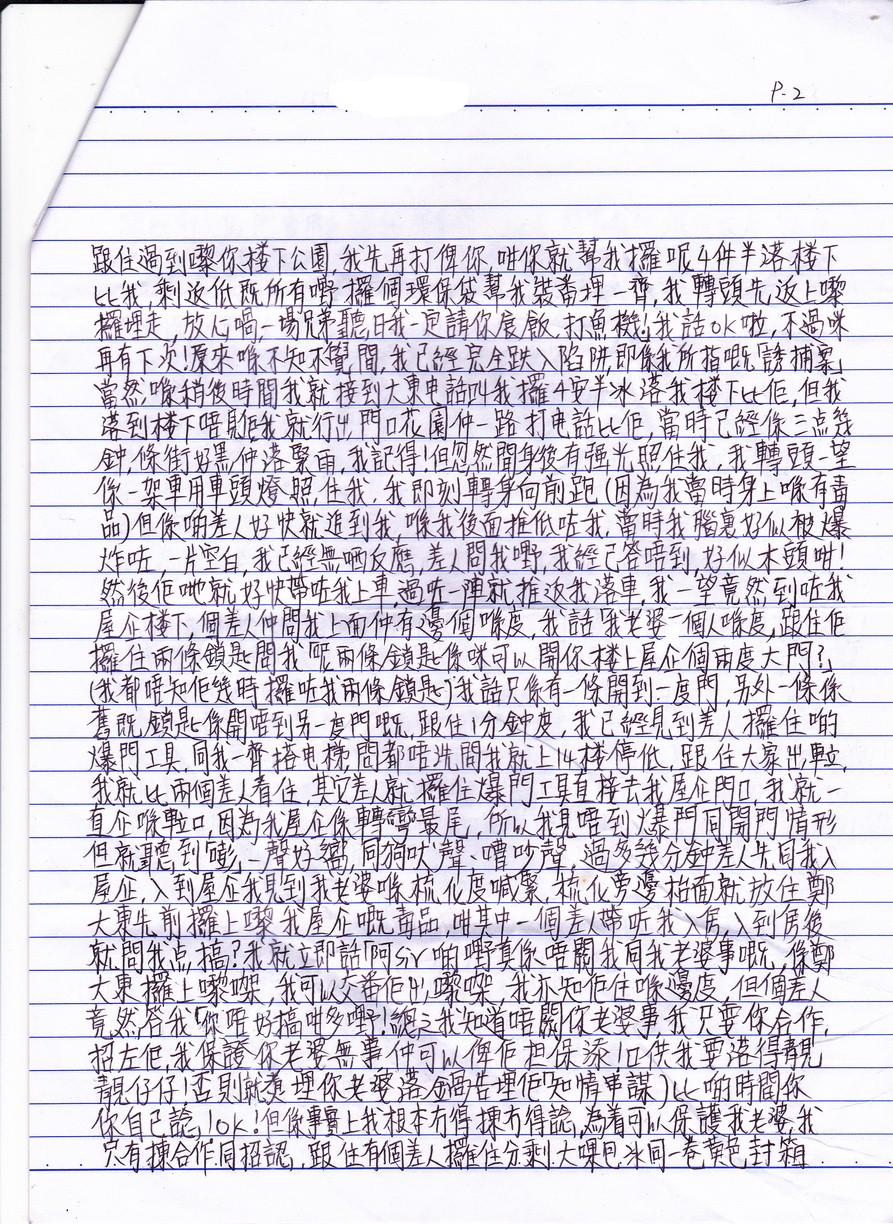 P-2
跟住過到嚟你楼下公園,我先再打俾你,咁你就幫我攞呢4件半落楼下
比我,剩返低既所有嘢攞個環保袋幫我裝畨埋一齊,我轉頭先返上嚟
攞埋走,放心喎一場兄弟聽日我一定請你食飯,打魚機!我話OK啦,不過咪
再有下次!原來喺不知不覺間,我已經完全跌入陷阱,即係我所指嘅「誘捕案」
當然喺稍後時間我就接到大東电話叫我攞4安半冰落我楼下比佢,但我
落到楼下唔見佢我就行出門口花園仲一路打电話比佢,當時已經係三点幾
鐘,條街好黑仲落緊雨,我記得!但忽然間身後有强光照住我,我轉頭一望
係一架車用車頭燈照住我,我即刻轉身向前跑(因為我當時身上喺有毒
品)但係啲差人好快就追到我,喺我後面推低咗我,當時我腦裏好似被爆
炸咗,一片空白,我已經無晒反應,差人問我嘢,我經已答唔到,好似木頭咁!
然後佢哋就好快帶咗我上車,過咗一陣就推返我落車,我一望竟然到咗我
屋企楼下,個差人仲問我上面仲有邊個喺度,我話「我老婆一個人喺度,跟住佢
攞住兩條鎖匙問我「呢兩條鎖匙係咪可以開你楼上屋企個兩度大門?」
(我都唔知佢幾時攞咗我兩條鎖匙)我話只係有一條開到一度門,另外一條係
舊既鎖匙係開唔到另一度門嘅,跟住1分鐘度,我已經見到差人攞住啲
爆門工具,同我一齊搭电梯,問都唔洗問我就上14楼停低,跟住大家出𨋢,
我就比兩個差人看住,其它差人就攞住爆門工具直接去我屋企門口,我就一
直企喺𨋢口,因為我屋企係轉彎最尾,所以我見唔到爆門同開門情形
但就聽到「嘭」一聲好嚮,同狗吠聲、嘈吵聲,過多幾分钟差人先同我入
屋企,入到屋企我見到我老婆喺梳化度喊緊,梳化旁邊枱面就放住鄭
大東先前攞上嚟我屋企嘅毒品,咁其中一個差人帶咗我入房,入到房後
就問我点搞?我就立即話「阿sir啲嘢真係唔關我同我老婆事嘅,係鄭
大東攞上嚟㗎,我可以交畨佢出嚟㗎,我亦知佢住喺邊度,但個差人
竟然答我「你唔好搞咁多嘢!總之我知道唔關你老婆事,我只要你合作,
招左佢,我保證你老婆無事仲可以俾佢担保添!口供我要落得靚
靚仔仔!否則就連埋你老婆落鑊告埋佢「知情串謀」比啲時間你
你自己諗!OK!但係事實上我根本冇得揀冇得諗,為着可以保護我老婆,我
只有揀合作同招認,跟住有個差人攞住分剩大嚿既冰同一卷黃色封箱